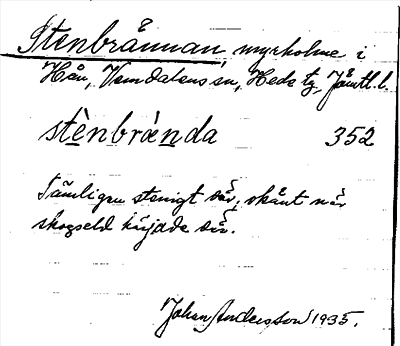 Stenbrännan, myrholme i
Hån, Vemdalens sn, Hede tg, Jämtl. l.
stènbrä̀nda 352
Tämligen stenigt där, skånt när
skogseld härjade där.
Johan Andersson 1935.